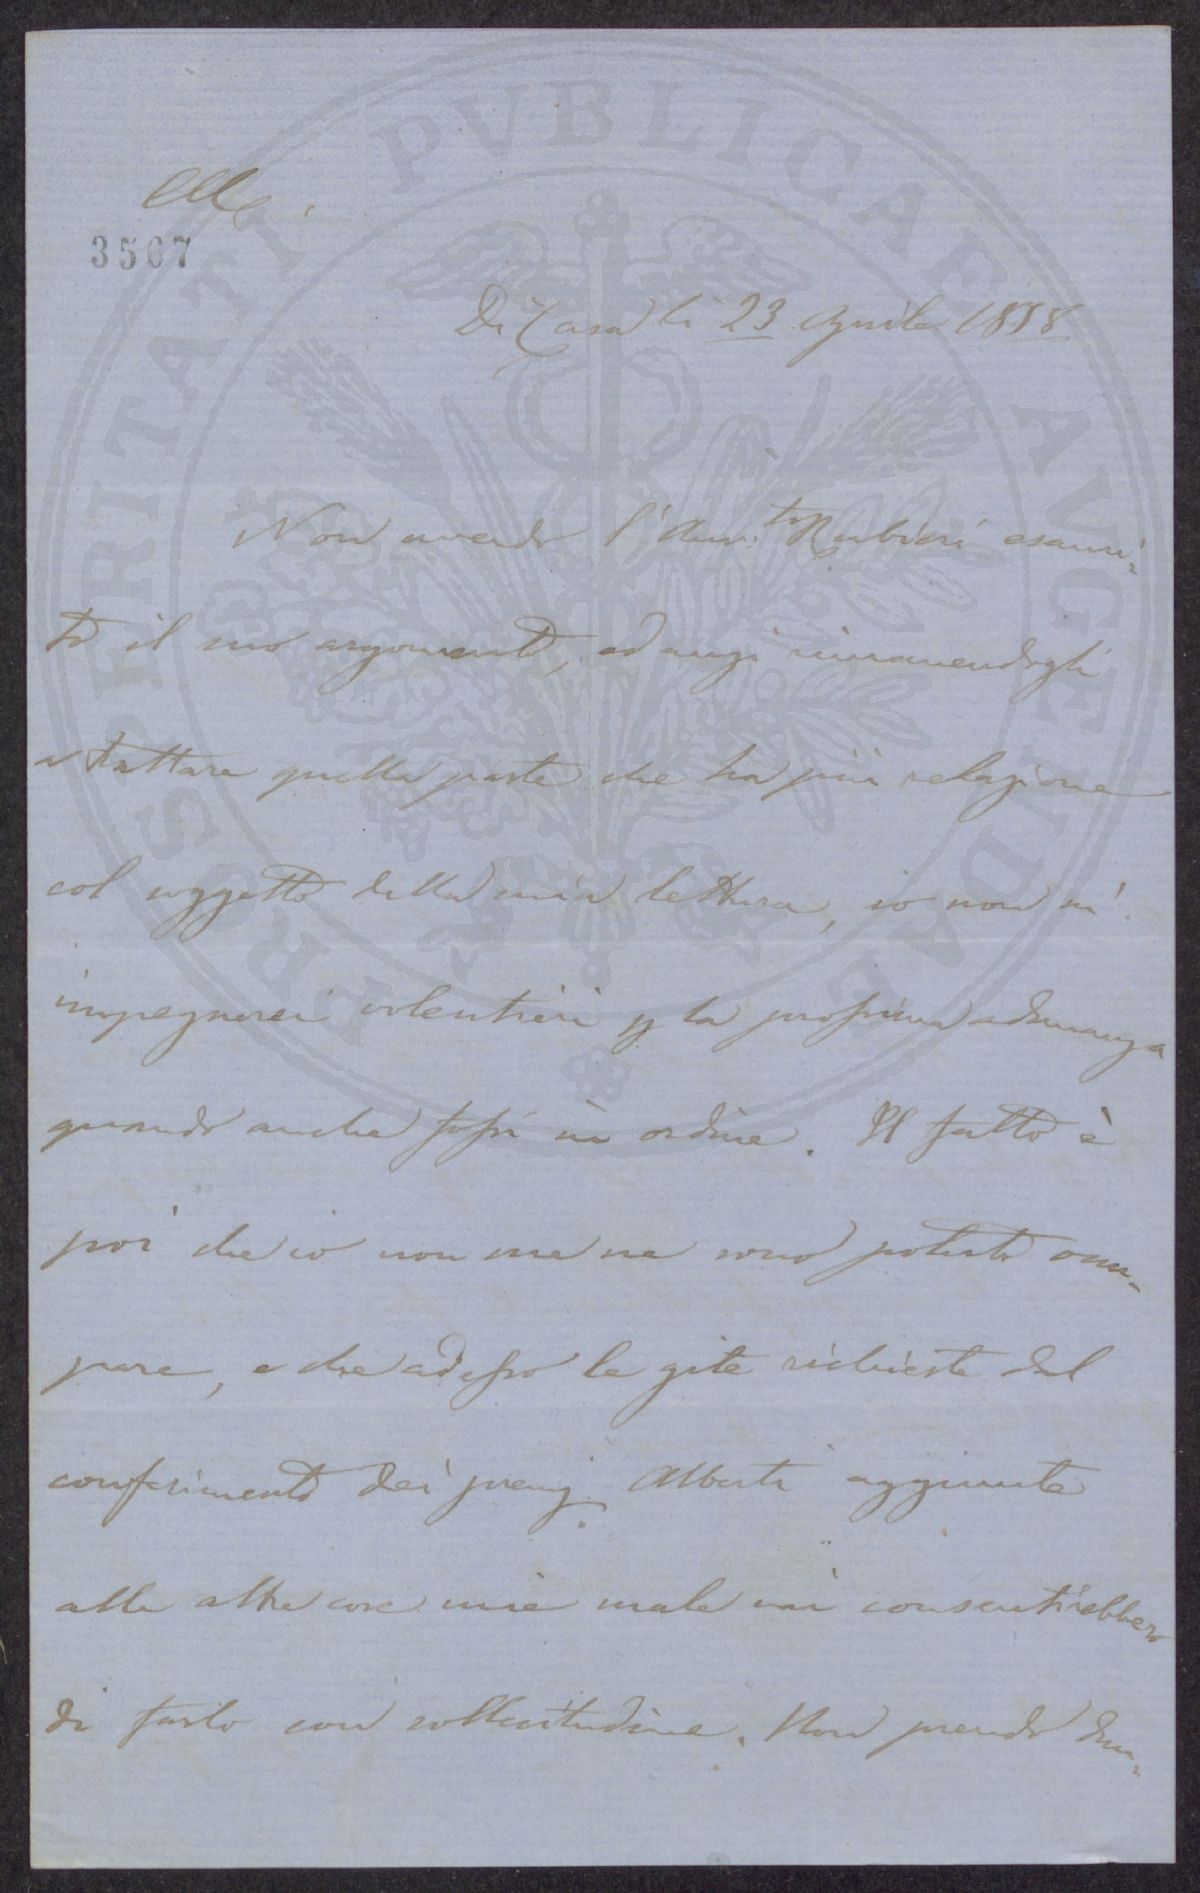 3567
Di Casa li 23 Aprile 1858
Non avendo l'Avv.to Rubieri esauri-
to il suo argomento, ed anzi rimanendogli
a trattare quella parte che ha più relazione
col soggetto della mia lettura, io non m'
impegnerei volentieri p la prossima adunanza
quando anche fossi in ordine. Il fatto è
poi che io non me ne sono potuto occu-
pare, e che adesso le gite richieste dal
conferimento dei premj Alberti aggiunte
alle altre cose mie male mi consentirebbero
di farlo con sollecitudine. Non prendo dun-
PROSPERITATI PVBLICAE AVGENDAE